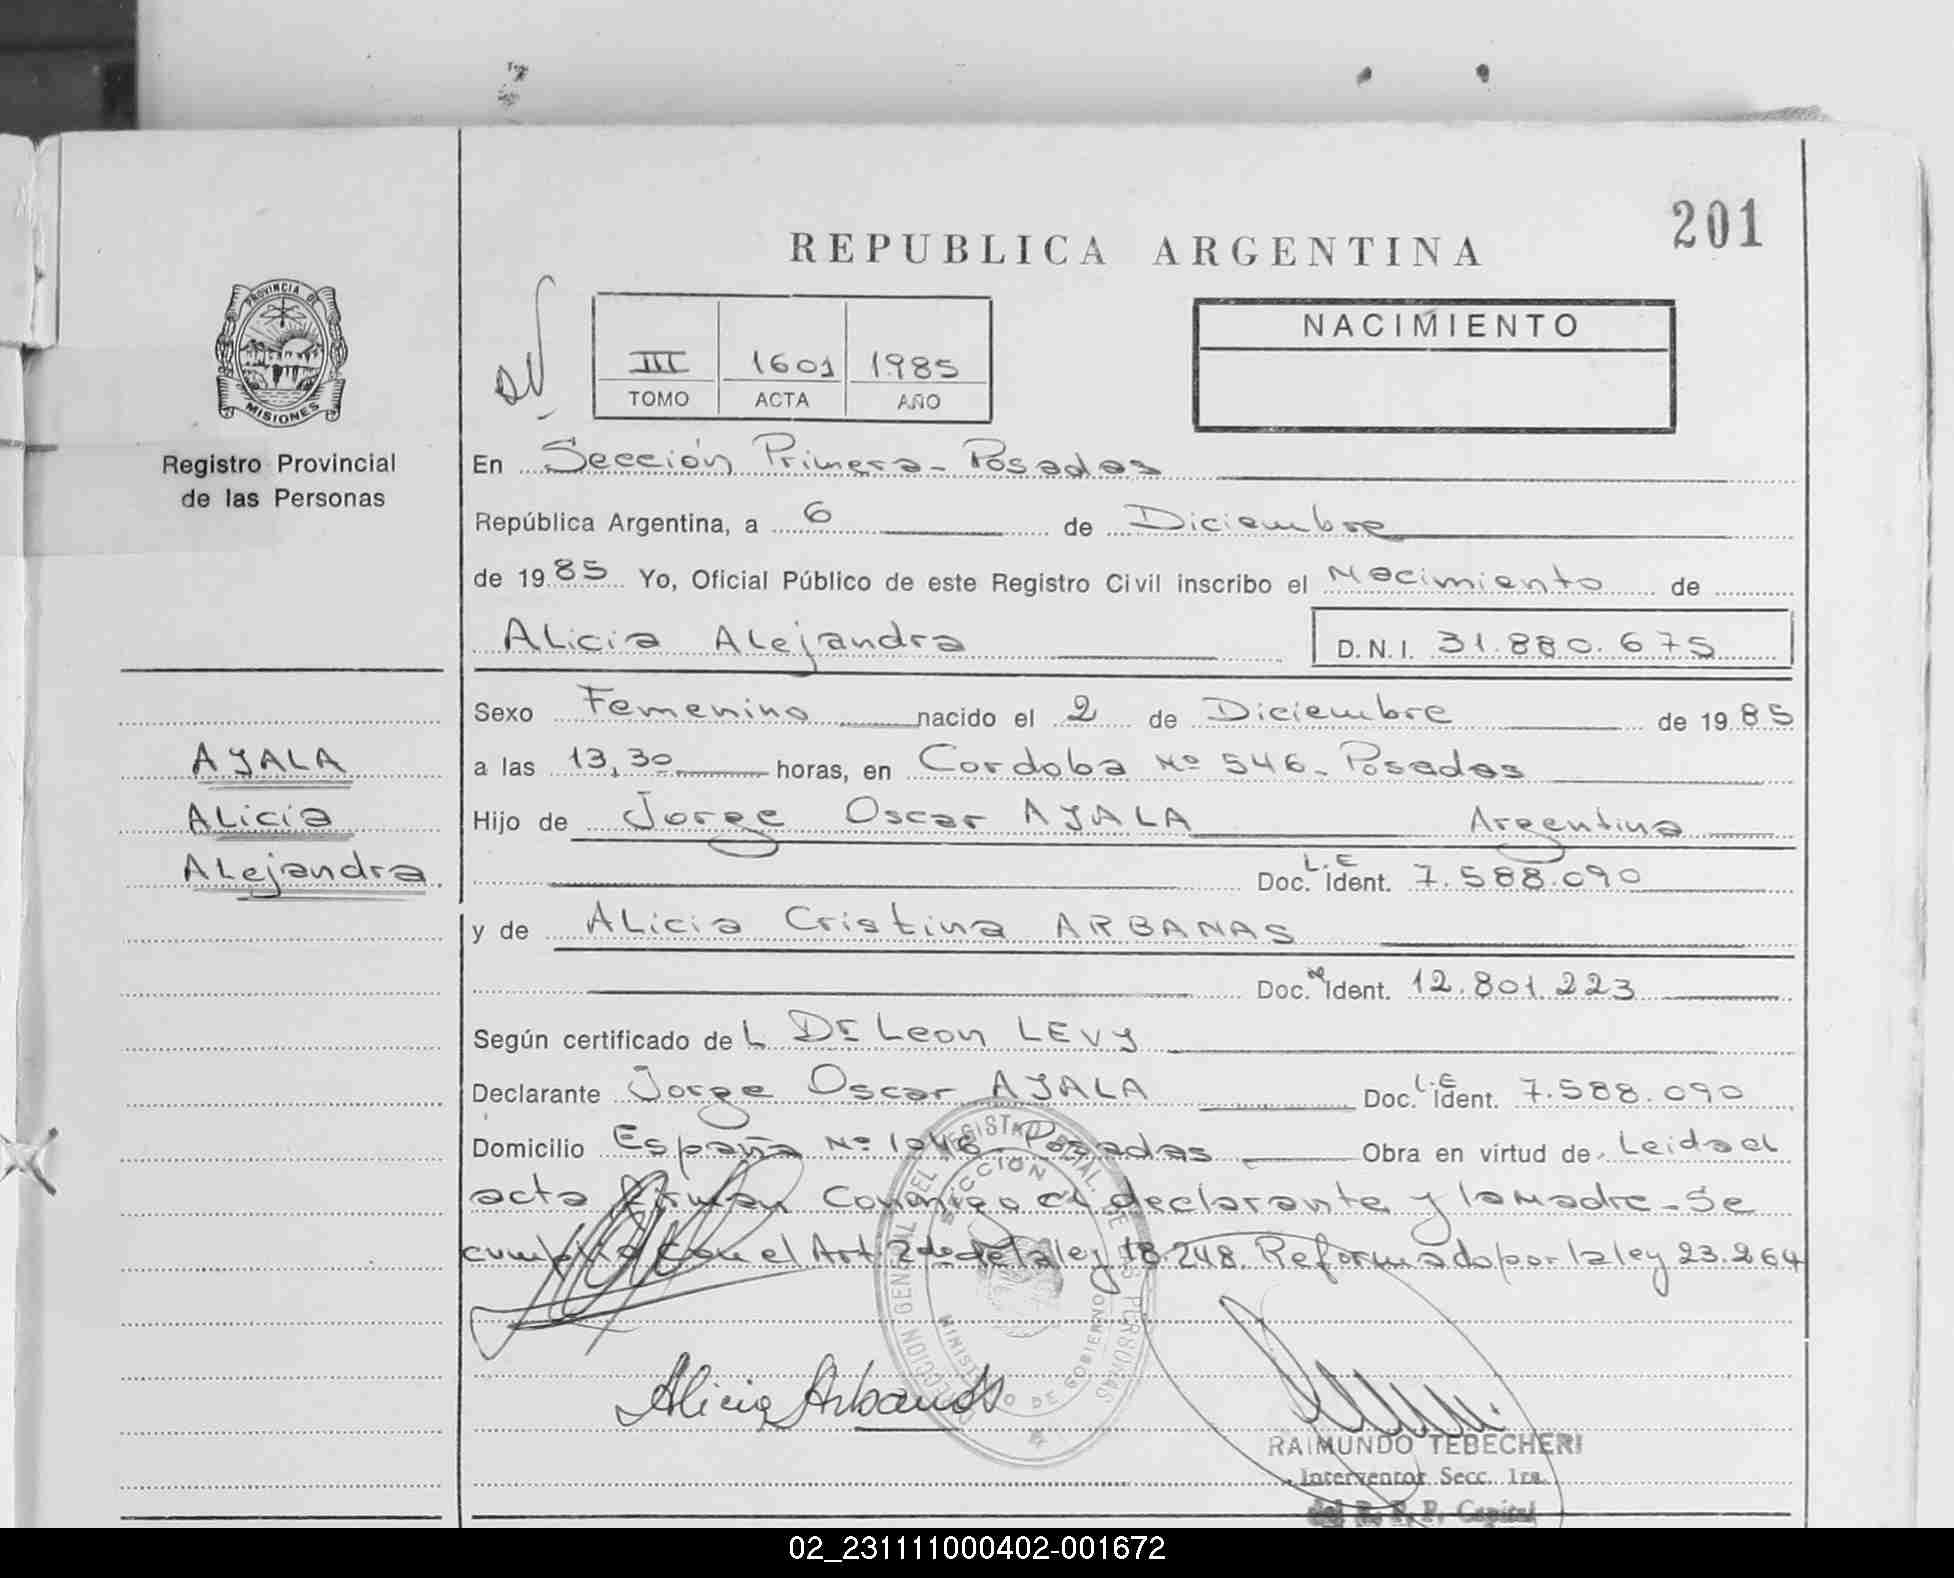 201
REPUBLICA ARGENTINA
PROVINCIA DE
MISIONES
Registro Provincial
de las Personas
III 1601 1985
TOMO ACTA AÑO
NACIMIENTO
En Sección Primera - Posadas
República Argentina, a 6 de Diciembre
de 1985 Yo, Oficial Público de este Registro Civil inscribo el Nacimiento de
ALicia ALejandra D.N.I. 31.880.675
Sexo Femenino nacido el 2 de Diciembre de 1985
AYALA
a las 13,30 horas, en Cordoba Nº 546 - Posadas
ALicia
Hijo de Jorge Oscar AYALA Argentina
ALejandra
L.E
Doc. Ident. 7.588.090
y de ALicia Cristina ARBANAS
Doc. Ident. 12.801.223
Según certificado de L Dr Leon LEVY
Declarante Jorge Oscar AYALA Doc. L.E Ident. 7.588.090
Domicilio España Nº 1046 - Posadas Obra en virtud de Leida el
acta firman conmigo el declarante y la Madre - Se
cumplio con el Art. 2do de la ley 18.248. Reformado por la ley 23.264
DIRECCION GENERAL DEL REGISTRO PCIAL. DE LAS PERSONAS
SECCION
MINISTERIO DE GOBIERNO
Alicia Arbanas
RAIMUNDO TEBECHERI
Interventor Secc. 1ra.
del R. P. P. Capital
02_231111000402-001672